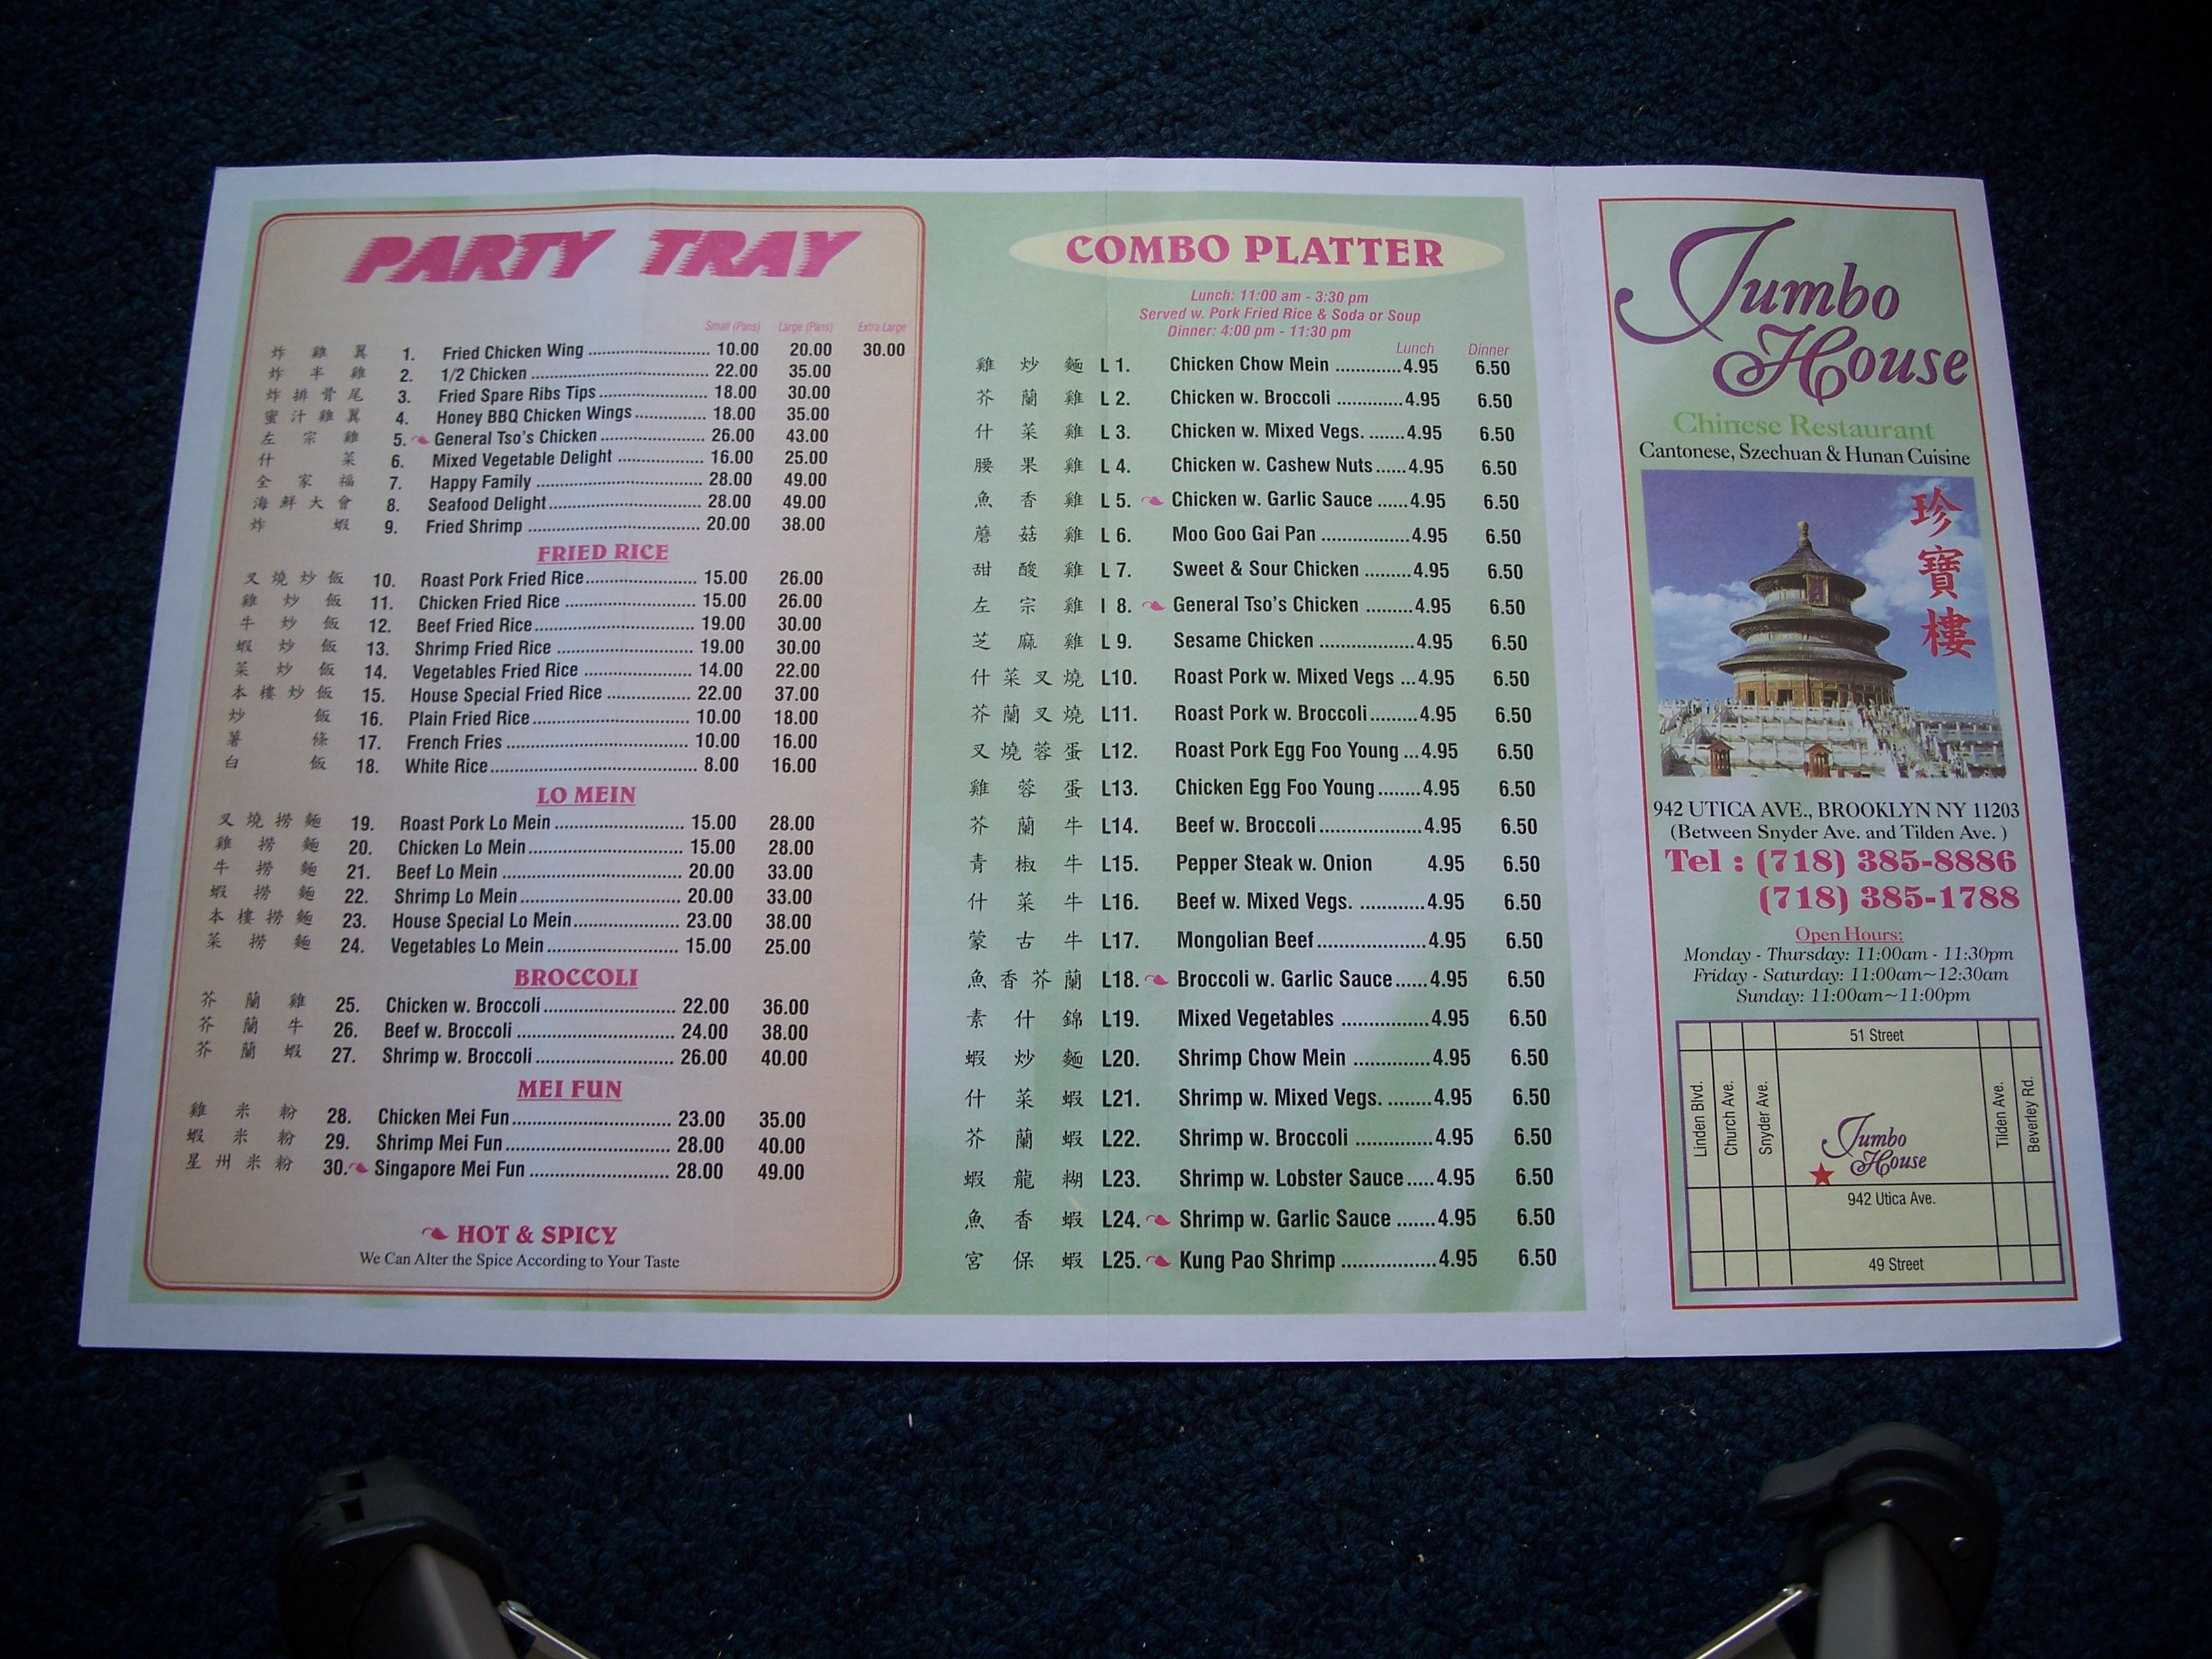 PARTY TRAY
Small (Pans) Large (Pans) Extra Large
炸雞翼 1. Fried Chicken Wing 10.00 20.00 30.00
炸半雞 2. 1/2 Chicken 22.00 35.00
炸排骨尾 3. Fried Spare Ribs Tips 18.00 30.00
蜜汁雞翼 4. Honey BBQ Chicken Wings 18.00 35.00
左宗雞 5. General Tso's Chicken 26.00 43.00
什菜 6. Mixed Vegetable Delight 16.00 25.00
全家福 7. Happy Family 28.00 49.00
海鮮大會 8. Seafood Delight 28.00 49.00
炸蝦 9. Fried Shrimp 20.00 38.00
FRIED RICE
叉燒炒飯 10. Roast Pork Fried Rice 15.00 26.00
雞炒飯 11. Chicken Fried Rice 15.00 26.00
牛炒飯 12. Beef Fried Rice 19.00 30.00
蝦炒飯 13. Shrimp Fried Rice 19.00 30.00
菜炒飯 14. Vegetables Fried Rice 14.00 22.00
本樓炒飯 15. House Special Fried Rice 22.00 37.00
炒飯 16. Plain Fried Rice 10.00 18.00
薯條 17. French Fries 10.00 16.00
白飯 18. White Rice 8.00 16.00
LO MEIN
叉燒撈麵 19. Roast Pork Lo Mein 15.00 28.00
雞撈麵 20. Chicken Lo Mein 15.00 28.00
牛撈麵 21. Beef Lo Mein 20.00 33.00
蝦撈麵 22. Shrimp Lo Mein 20.00 33.00
本樓撈麵 23. House Special Lo Mein 23.00 38.00
菜撈麵 24. Vegetables Lo Mein 15.00 25.00
BROCCOLI
芥蘭雞 25. Chicken w. Broccoli 22.00 36.00
芥蘭牛 26. Beef w. Broccoli 24.00 38.00
芥蘭蝦 27. Shrimp w. Broccoli 26.00 40.00
MEI FUN
雞米粉 28. Chicken Mei Fun 23.00 35.00
蝦米粉 29. Shrimp Mei Fun 28.00 40.00
星州米粉 30. Singapore Mei Fun 28.00 49.00
HOT & SPICY
We Can Alter the Spice According to Your Taste
COMBO PLATTER
Lunch: 11:00 am - 3:30 pm
Served w. Pork Fried Rice & Soda or Soup
Dinner: 4:00 pm - 11:30 pm
Lunch Dinner
雞炒麵 L 1. Chicken Chow Mein 4.95 6.50
芥蘭雞 L 2. Chicken w. Broccoli 4.95 6.50
什菜雞 L 3. Chicken w. Mixed Vegs. 4.95 6.50
腰果雞 L 4. Chicken w. Cashew Nuts 4.95 6.50
魚香雞 L 5. Chicken w. Garlic Sauce 4.95 6.50
蘑菇雞 L 6. Moo Goo Gai Pan 4.95 6.50
甜酸雞 L 7. Sweet & Sour Chicken 4.95 6.50
左宗雞 l 8. General Tso's Chicken 4.95 6.50
芝麻雞 L 9. Sesame Chicken 4.95 6.50
什菜叉燒 L10. Roast Pork w. Mixed Vegs 4.95 6.50
芥蘭叉燒 L11. Roast Pork w. Broccoli 4.95 6.50
叉燒蓉蛋 L12. Roast Pork Egg Foo Young 4.95 6.50
雞蓉蛋 L13. Chicken Egg Foo Young 4.95 6.50
芥蘭牛 L14. Beef w. Broccoli 4.95 6.50
青椒牛 L15. Pepper Steak w. Onion 4.95 6.50
什菜牛 L16. Beef w. Mixed Vegs. 4.95 6.50
蒙古牛 L17. Mongolian Beef 4.95 6.50
魚香芥蘭 L18. Broccoli w. Garlic Sauce 4.95 6.50
素什錦 L19. Mixed Vegetables 4.95 6.50
蝦炒麵 L20. Shrimp Chow Mein 4.95 6.50
什菜蝦 L21. Shrimp w. Mixed Vegs. 4.95 6.50
芥蘭蝦 L22. Shrimp w. Broccoli 4.95 6.50
蝦龍糊 L23. Shrimp w. Lobster Sauce 4.95 6.50
魚香蝦 L24. Shrimp w. Garlic Sauce 4.95 6.50
宮保蝦 L25. Kung Pao Shrimp 4.95 6.50
Jumbo
House
Chinese Restaurant
Cantonese, Szechuan & Hunan Cuisine
珍寶樓
942 UTICA AVE., BROOKLYN NY 11203
(Between Snyder Ave. and Tilden Ave. )
Tel : (718) 385-8886
(718) 385-1788
Open Hours:
Monday - Thursday: 11:00am - 11:30pm
Friday - Saturday: 11:00am~12:30am
Sunday: 11:00am~11:00pm
51 Street
Linden Blvd.
Church Ave.
Snyder Ave.
Jumbo
House
Tilden Ave.
Beverley Rd.
942 Utica Ave.
49 Street